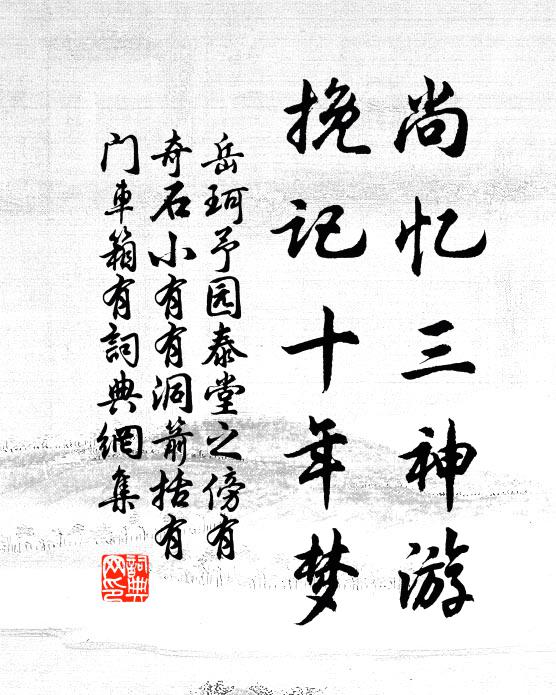 尚忆三神游
挽记十年梦
岳珂予园泰堂之傍有
奇石小有有洞箭括有
门车箱有詞典網集
詞典
网印